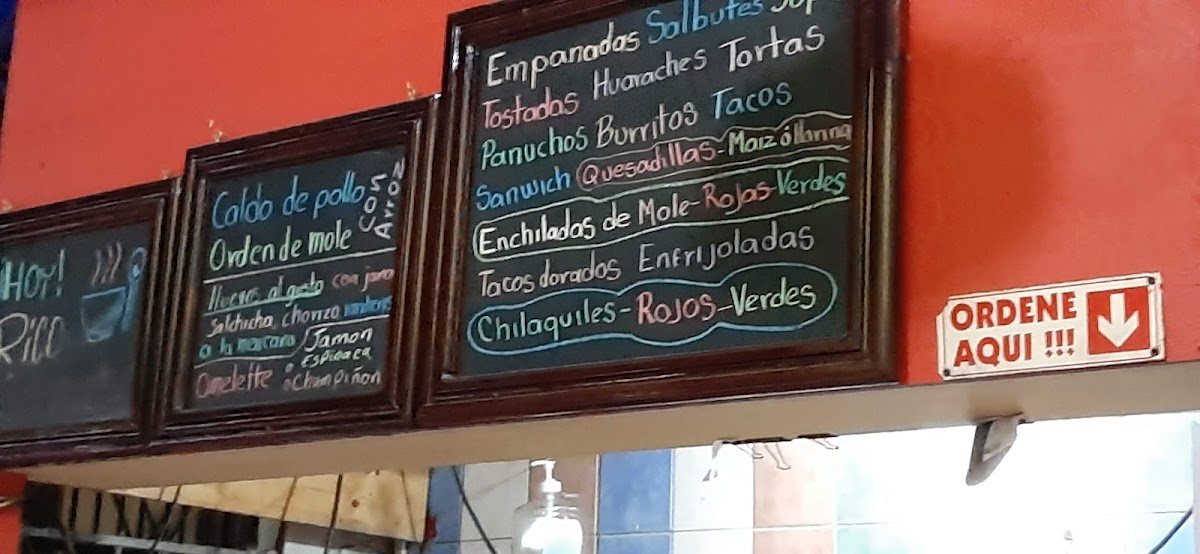 ¡HOY!
Rico
Caldo de pollo
con Arroz
Orden de mole
Huevos al gusto con jamon
Salchicha, chorizo
a la mexicana
Omelette
Jamon
o Espinaca
o Champiñon
Empanadas Salbutes
Tostadas Huaraches Tortas
Panuchos Burritos Tacos
Sanwich Quesadillas-Maiz ó Harina
Enchiladas de Mole-Rojas-Verdes
Tacos dorados Enfrijoladas
Chilaquiles-Rojos-Verdes
ORDENE
AQUI !!!